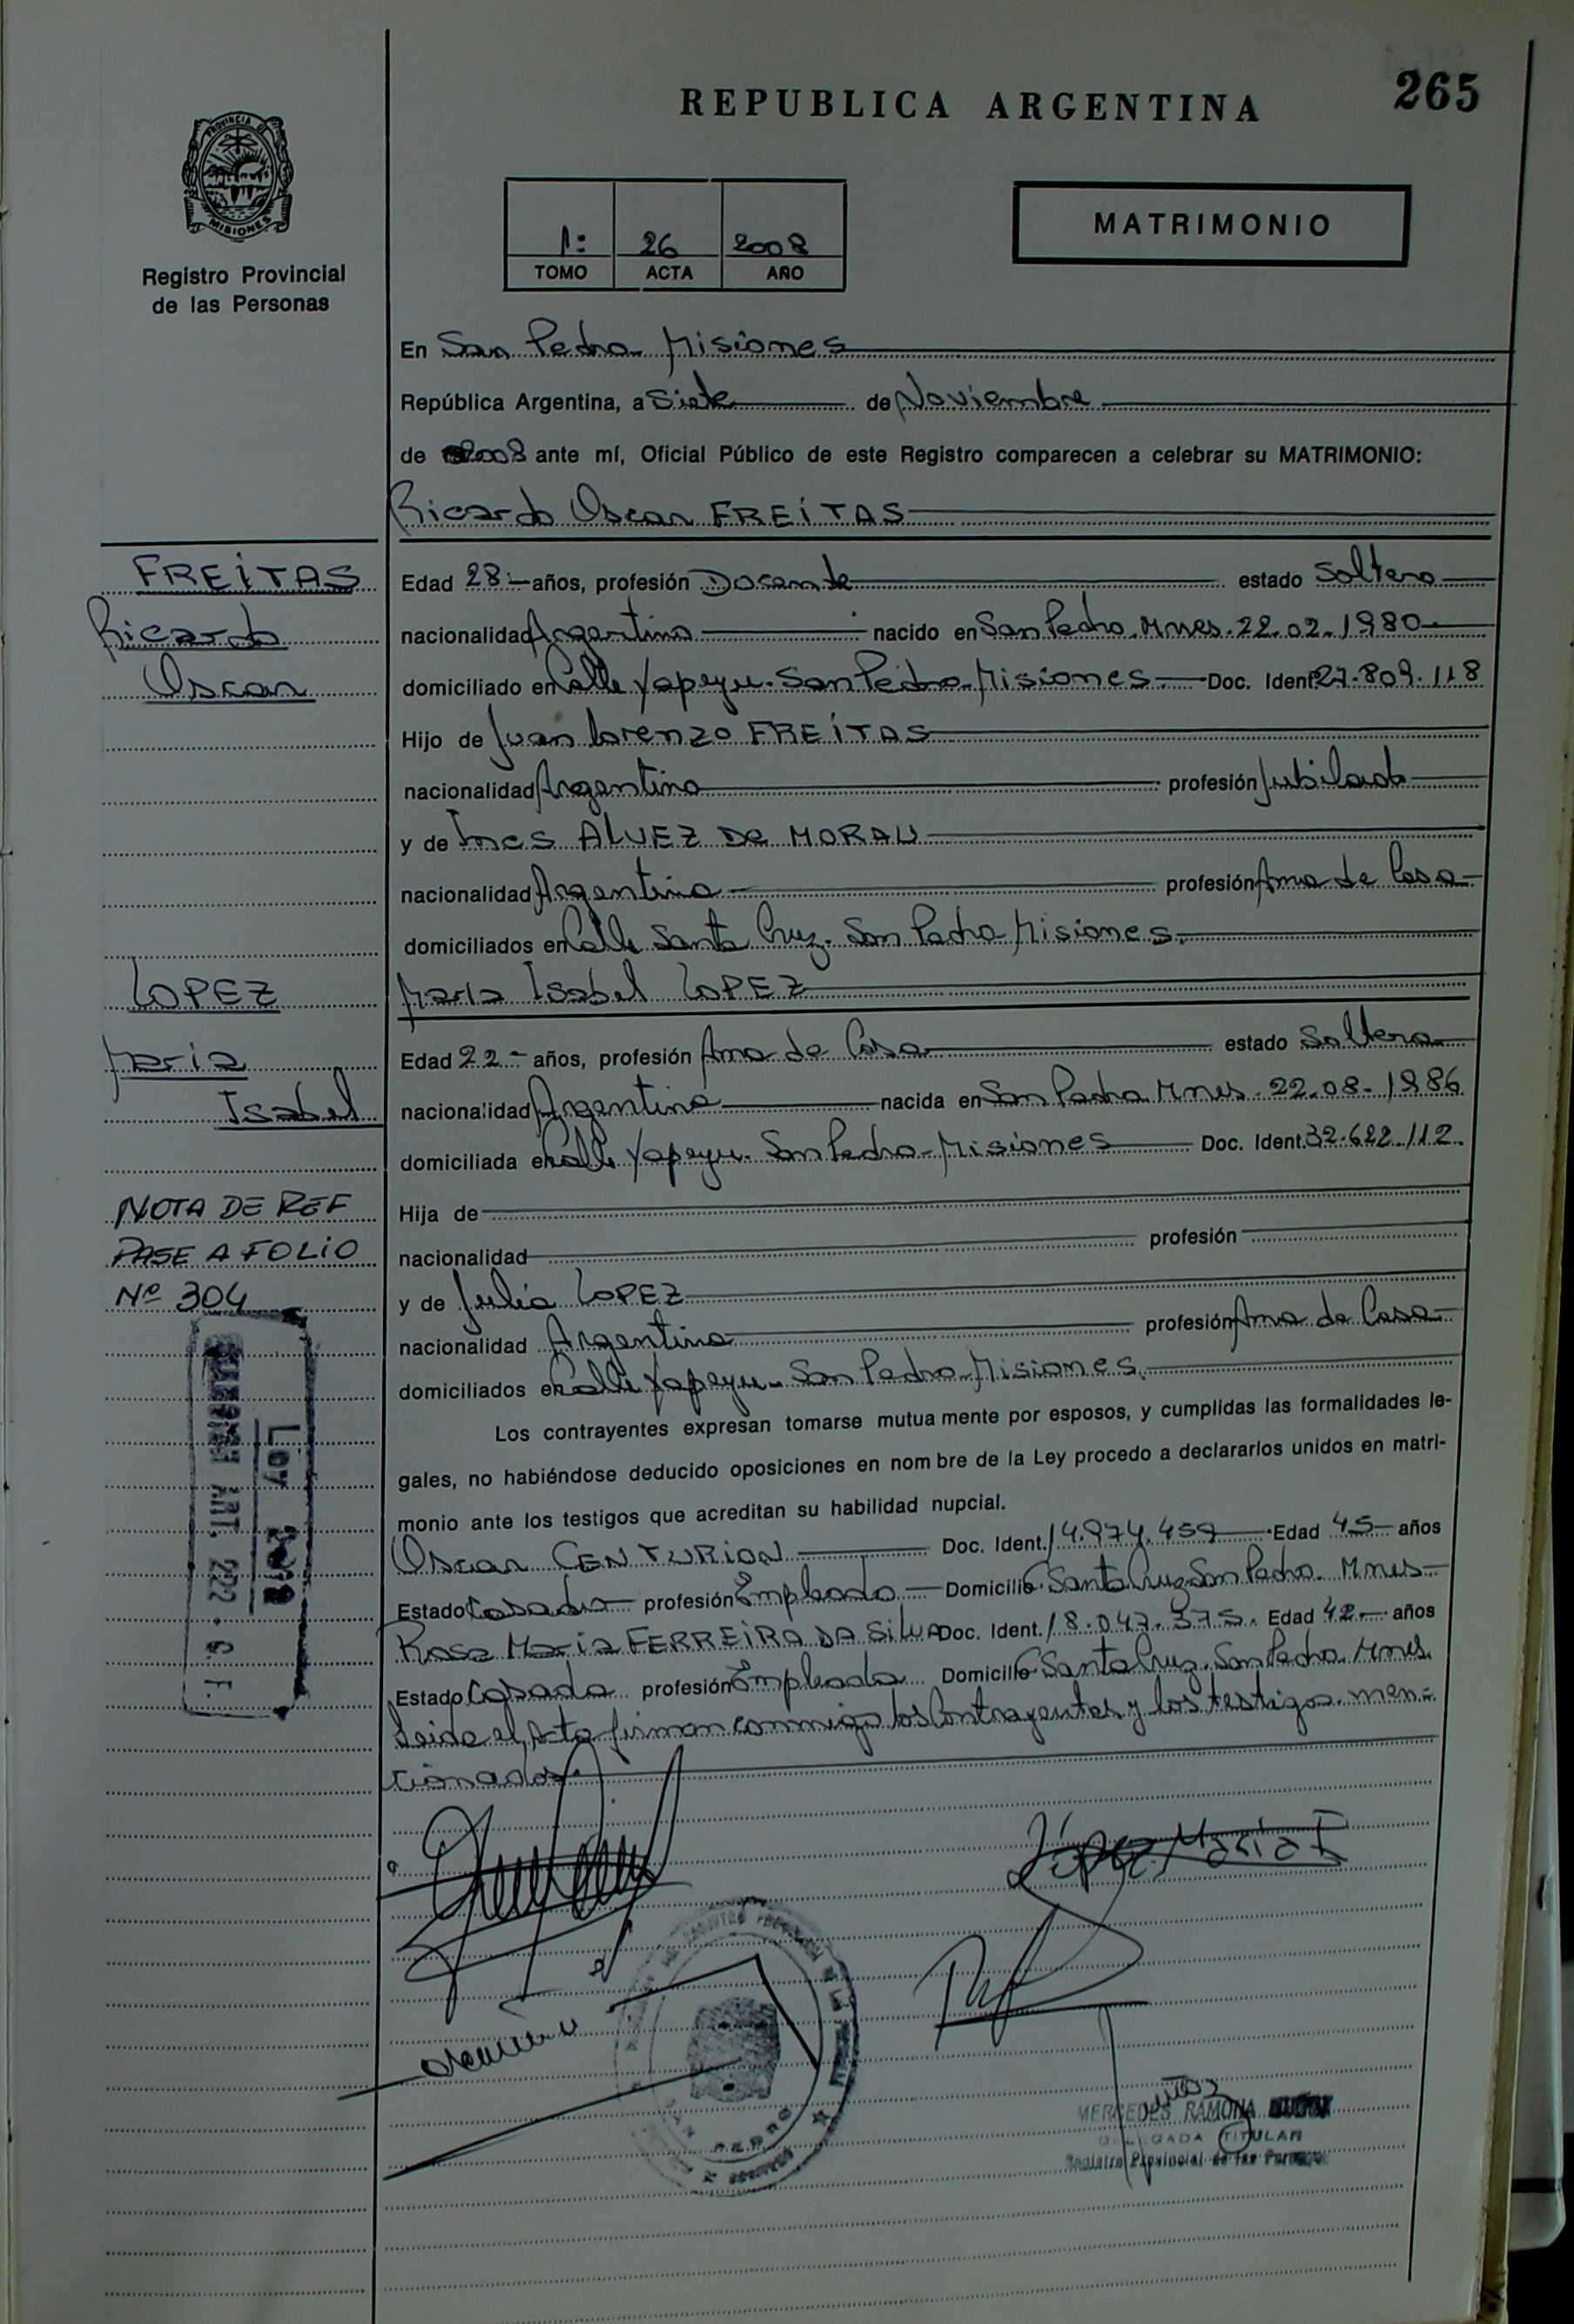 265
REPUBLICA ARGENTINA
PROVINCIA DE
MISIONES
Registro Provincial
de las Personas
1º 26 2008
TOMO ACTA AÑO
MATRIMONIO
En San Pedro - Misiones
República Argentina, a Siete de Noviembre
de 2008 ante mí, Oficial Público de este Registro comparecen a celebrar su MATRIMONIO:
Ricardo Oscar FREITAS
FREITAS
Ricardo
Oscar
Edad 28 - años, profesión Docente estado Soltero
nacionalidad Argentina nacido en San Pedro. Mnes. 22.02.1980
domiciliado en Calle Yapeyu - San Pedro - Misiones. Doc. Ident. 27.809.118
Hijo de Juan Lorenzo FREITAS
nacionalidad Argentina profesión Jubilado
y de Ines ALVEZ DE MORAU
nacionalidad Argentina profesión Ama de Casa
domiciliados en Calle Santa Cruz. San Pedro Misiones.
LOPEZ
Maria
Isabel
Maria Isabel LOPEZ
Edad 22 - años, profesión Ama de Casa estado Soltera
nacionalidad Argentina nacida en San Pedro Mnes. 22.08.1986
domiciliada en Calle Yapeyu. San Pedro - Misiones Doc. Ident. 32.622.112.
NOTA DE REF
PASE A FOLIO
Nº 304
Hija de
nacionalidad profesión
y de Julia LOPEZ
nacionalidad Argentina profesión Ama de Casa
domiciliados en Calle Yapeyu - San Pedro - Misiones.
Los contrayentes expresan tomarse mutuamente por esposos, y cumplidas las formalidades le-
gales, no habiéndose deducido oposiciones en nombre de la Ley procedo a declararlos unidos en matri-
monio ante los testigos que acreditan su habilidad nupcial.
Oscar CENTURION Doc. Ident. 14.974.459 Edad 45 años
Estado Casado profesión Empleado Domicilio Santa Cruz. San Pedro. Mnes
Rosa Maria FERREIRA DA SILVA Doc. Ident. 18.047.375. Edad 42 años
Estado Casada profesión Empleada Domicilio Santa Cruz. San Pedro Mnes.
Leida el Acta firman conmigo los Contrayentes y los testigos men-
cionados.
ART. 222 - C. F.
López Maria I
SAN PEDRO
MERCEDES RAMONA
DELEGADA TITULAR
Registro Provincial de las Personas